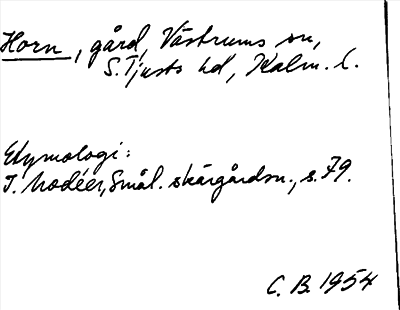 Horn, gård, Västrums sn,
S. Tjusts hd, Kalm. l.
Etymologi:
I. Modéer, Smål. skärgårdsn., s. 79.
C. B. 1954